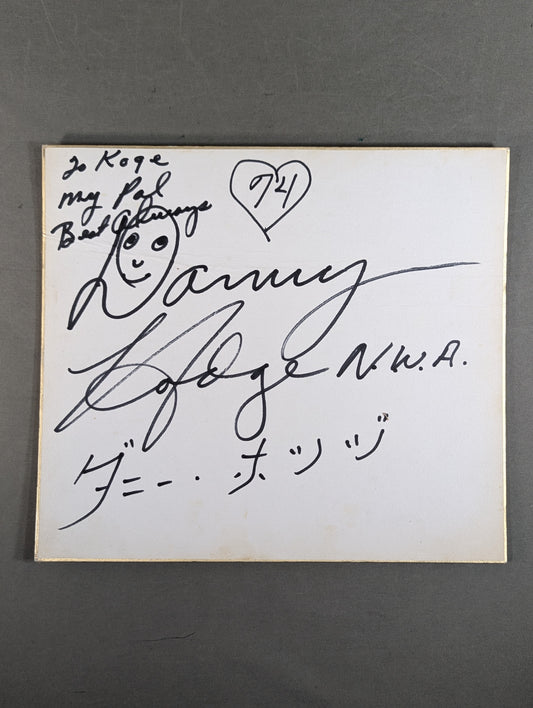 To Koge
My Pal
Best Always
74
Danny
Hodge N.W.A.
ダニー・ホッジ